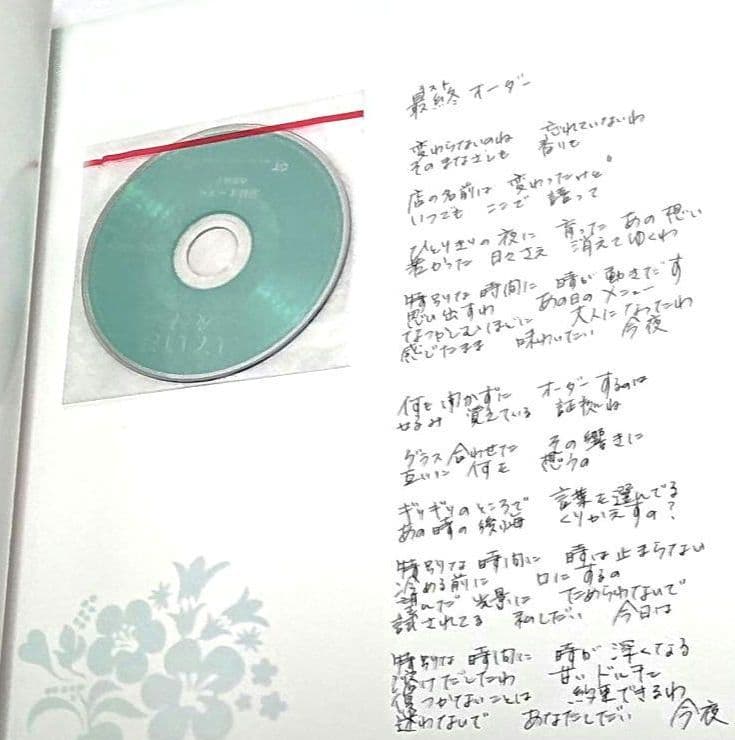 最終 オーダー
変わらないのね 忘れていないわ
そのまなざしも 香りも
店の名前は 変わったけど
いつでも ここで 語って
ひとりきりの夜に 育った あの想い
若かった 日々さえ 消えてゆくわ
特別な 時間に 時が 動きだす
思い出すわ あの日の メニュー
なつかしむほどに 大人に なったわ
感じたまま 味わいたい 今夜
何も 聞かずに オーダー するのは
好み 覚えている 証拠ね
グラス 合わせた その 響きに
互いに 何を 想うの
ギリギリのところで 言葉を 選んでる
あの時の 後悔 くりかえすの?
特別な 時間に 時は 止まらない
冷める前に 口に するの
澄んだ 光景に ためらわないで
試されてる 私しだい 今日は
特別な 時間に 時が 深くなる
溶けだしたわ 甘い ドルチェ
傷つかないことは 約束できるわ
迷わないで あなたしだい 今夜